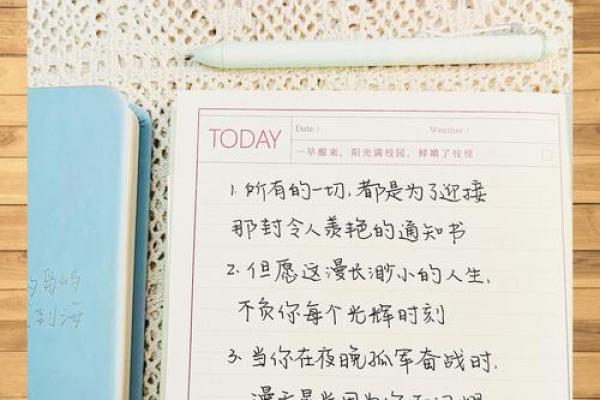 TODAY
Date /
Weather /
一早醒来，阳光满校园，鲜嫩了枝桠
1. 所有的一切，都是为了迎接
那封令人羡艳的通知书
2. 但愿这漫长渺小的人生，
不负你每个光辉时刻
3. 当你在夜晚孤军奋战时，
漫天星光因为你而闪烁
岛屿
海